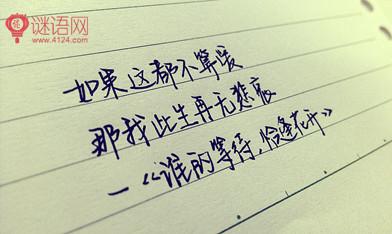 谜语网
www.4124.com
如果这都不算爱
那我此生再无悲哀
—《谁的等待,恰逢花开》